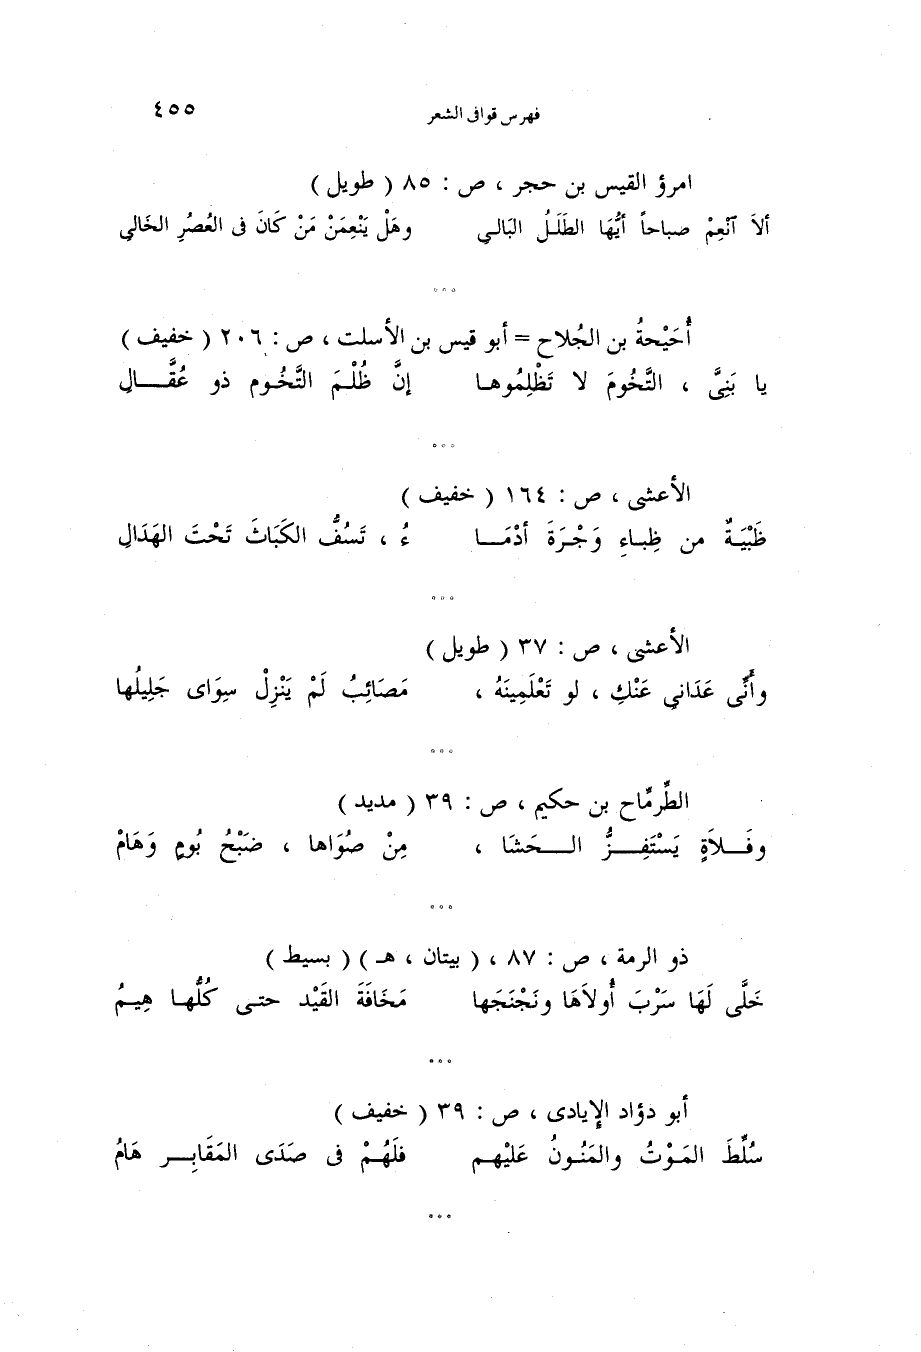 فهرس قوافى الشعر ٤٥٥
امرؤ القيس بن حجر ، ص : ٨٥ ( طويل )
ألاَ آنْعِمْ صباحاً أيُّهَا الطَلَلُ البَالي وهَلْ يَنْعِمَنْ مَنْ كَانَ فى العُصُرِ الخَالي
°°°
أُحَيْحةُ بن الجُلاح = أبو قيس بن الأسلت ، ص : ٢٠٦ ( خفيف )
يا بَنِىَّ ، التَّخُومَ لا تَظْلِمُوها إنَّ ظُلْمَ التَّخُوم ذو عُقَّالِ
°°°
الأعشى ، ص : ١٦٤ ( خفيف )
ظَبْيَةٌ من ظِباءِ وَجْرَةَ أدْمَا ءُ ، تَسُفُّ الكَبَاثَ تَحْتَ الهَدَالِ
°°°
الأعشى ، ص : ٣٧ ( طويل )
وأنِّى عَدَاني عَنْكِ ، لو تَعْلَمِينَهُ ، مَصَائِبُ لَمْ يَنْزِلْ سِوَاى جَلِيلُها
°°°
الطِّرمِّاح بن حكيم ، ص : ٣٩ ( مديد )
وفَلاَةٍ يَسْتَفِزُّ الحَشَا ، مِنْ صُوَاها ، ضَبْحُ بُومٍ وَهَامْ
°°°
ذو الرمة ، ص : ٨٧ ، ( بيتان ، هـ ) ( بسيط )
خَلَّى لَهَا سَرْبَ أُولاَهَا ونَجْنَجَها مَخَافَةَ القَيْد حتى كُلُّها هِيمُ
°°°
أبو دؤاد الإيادى ، ص : ٣٩ ( خفيف )
سُلِّطَ المَوْتُ والمَنُونُ عَلَيْهم فلَهُمْ فى صَدَى المَقَابِر هَامُ
°°°